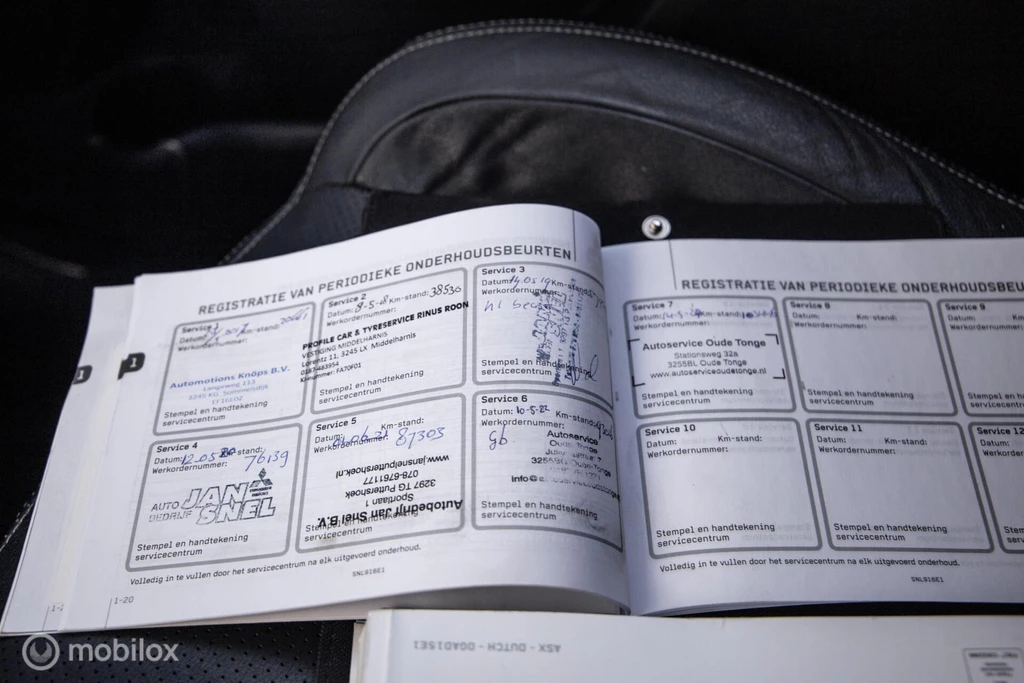 REGISTRATIE VAN PERIODIEKE ONDERHOUDSBEURTEN
Service 1
Datum: Km-stand:
Werkordernummer:
Automotions Knöps B.V.
Langeweg 113
3245 KG Sommelsdijk
Stempel en handtekening
servicecentrum
Service 2
Datum: 9-5-18 Km-stand: 38530
Werkordernummer:
PROFILE CAR & TYRESERVICE RINUS ROON
VESTIGING MIDDELHARNIS
Lorentz 11, 3245 LX Middelharnis
0187-483954
K-nummer: FA70F01
Stempel en handtekening
servicecentrum
Service 3
Datum: 14.05.19 Km-stand:
Werkordernummer:
Stempel en handtekening
servicecentrum
Service 4
Datum: 12.05.20 Km-stand:
Werkordernummer: 76139
AUTO BEDRIJF JAN SNEL
Stempel en handtekening
servicecentrum
Service 5
Datum: Km-stand:
Werkordernummer: 87303
Autobedrijf Jan Snel B.V.
Sportlaan 1
3297 TG Puttershoek
078-6761177
www.jansnelputtershoek.nl
Stempel en handtekening
servicecentrum
Service 6
Datum: 10-5-22 Km-stand:
Werkordernummer:
Autoservice
Oude Tonge
Stempel en handtekening
servicecentrum
Volledig in te vullen door het servicecentrum na elk uitgevoerd onderhoud.
SNL918E1
1-20
REGISTRATIE VAN PERIODIEKE ONDERHOUDSBEU
Service 7
Datum: Km-stand:
Werkordernummer:
Autoservice Oude Tonge
Stationsweg 32a
3255BL Oude Tonge
www.autoserviceoudetonge.nl
Stempel en handtekening
servicecentrum
Service 8
Datum: Km-stand:
Werkordernummer:
Stempel en handtekening
servicecentrum
Service 9
Datum:
Werkordernummer:
Stempel en
servicecent
Service 10
Datum: Km-stand:
Werkordernummer:
Stempel en handtekening
servicecentrum
Service 11
Datum: Km-stand:
Werkordernummer:
Stempel en handtekening
servicecentrum
Service 12
Datum:
Volledig in te vullen door het servicecentrum na elk uitgevoerd onderhoud.
SNL918E1
ASX - DUTCH - OGAD15E1
mobilox